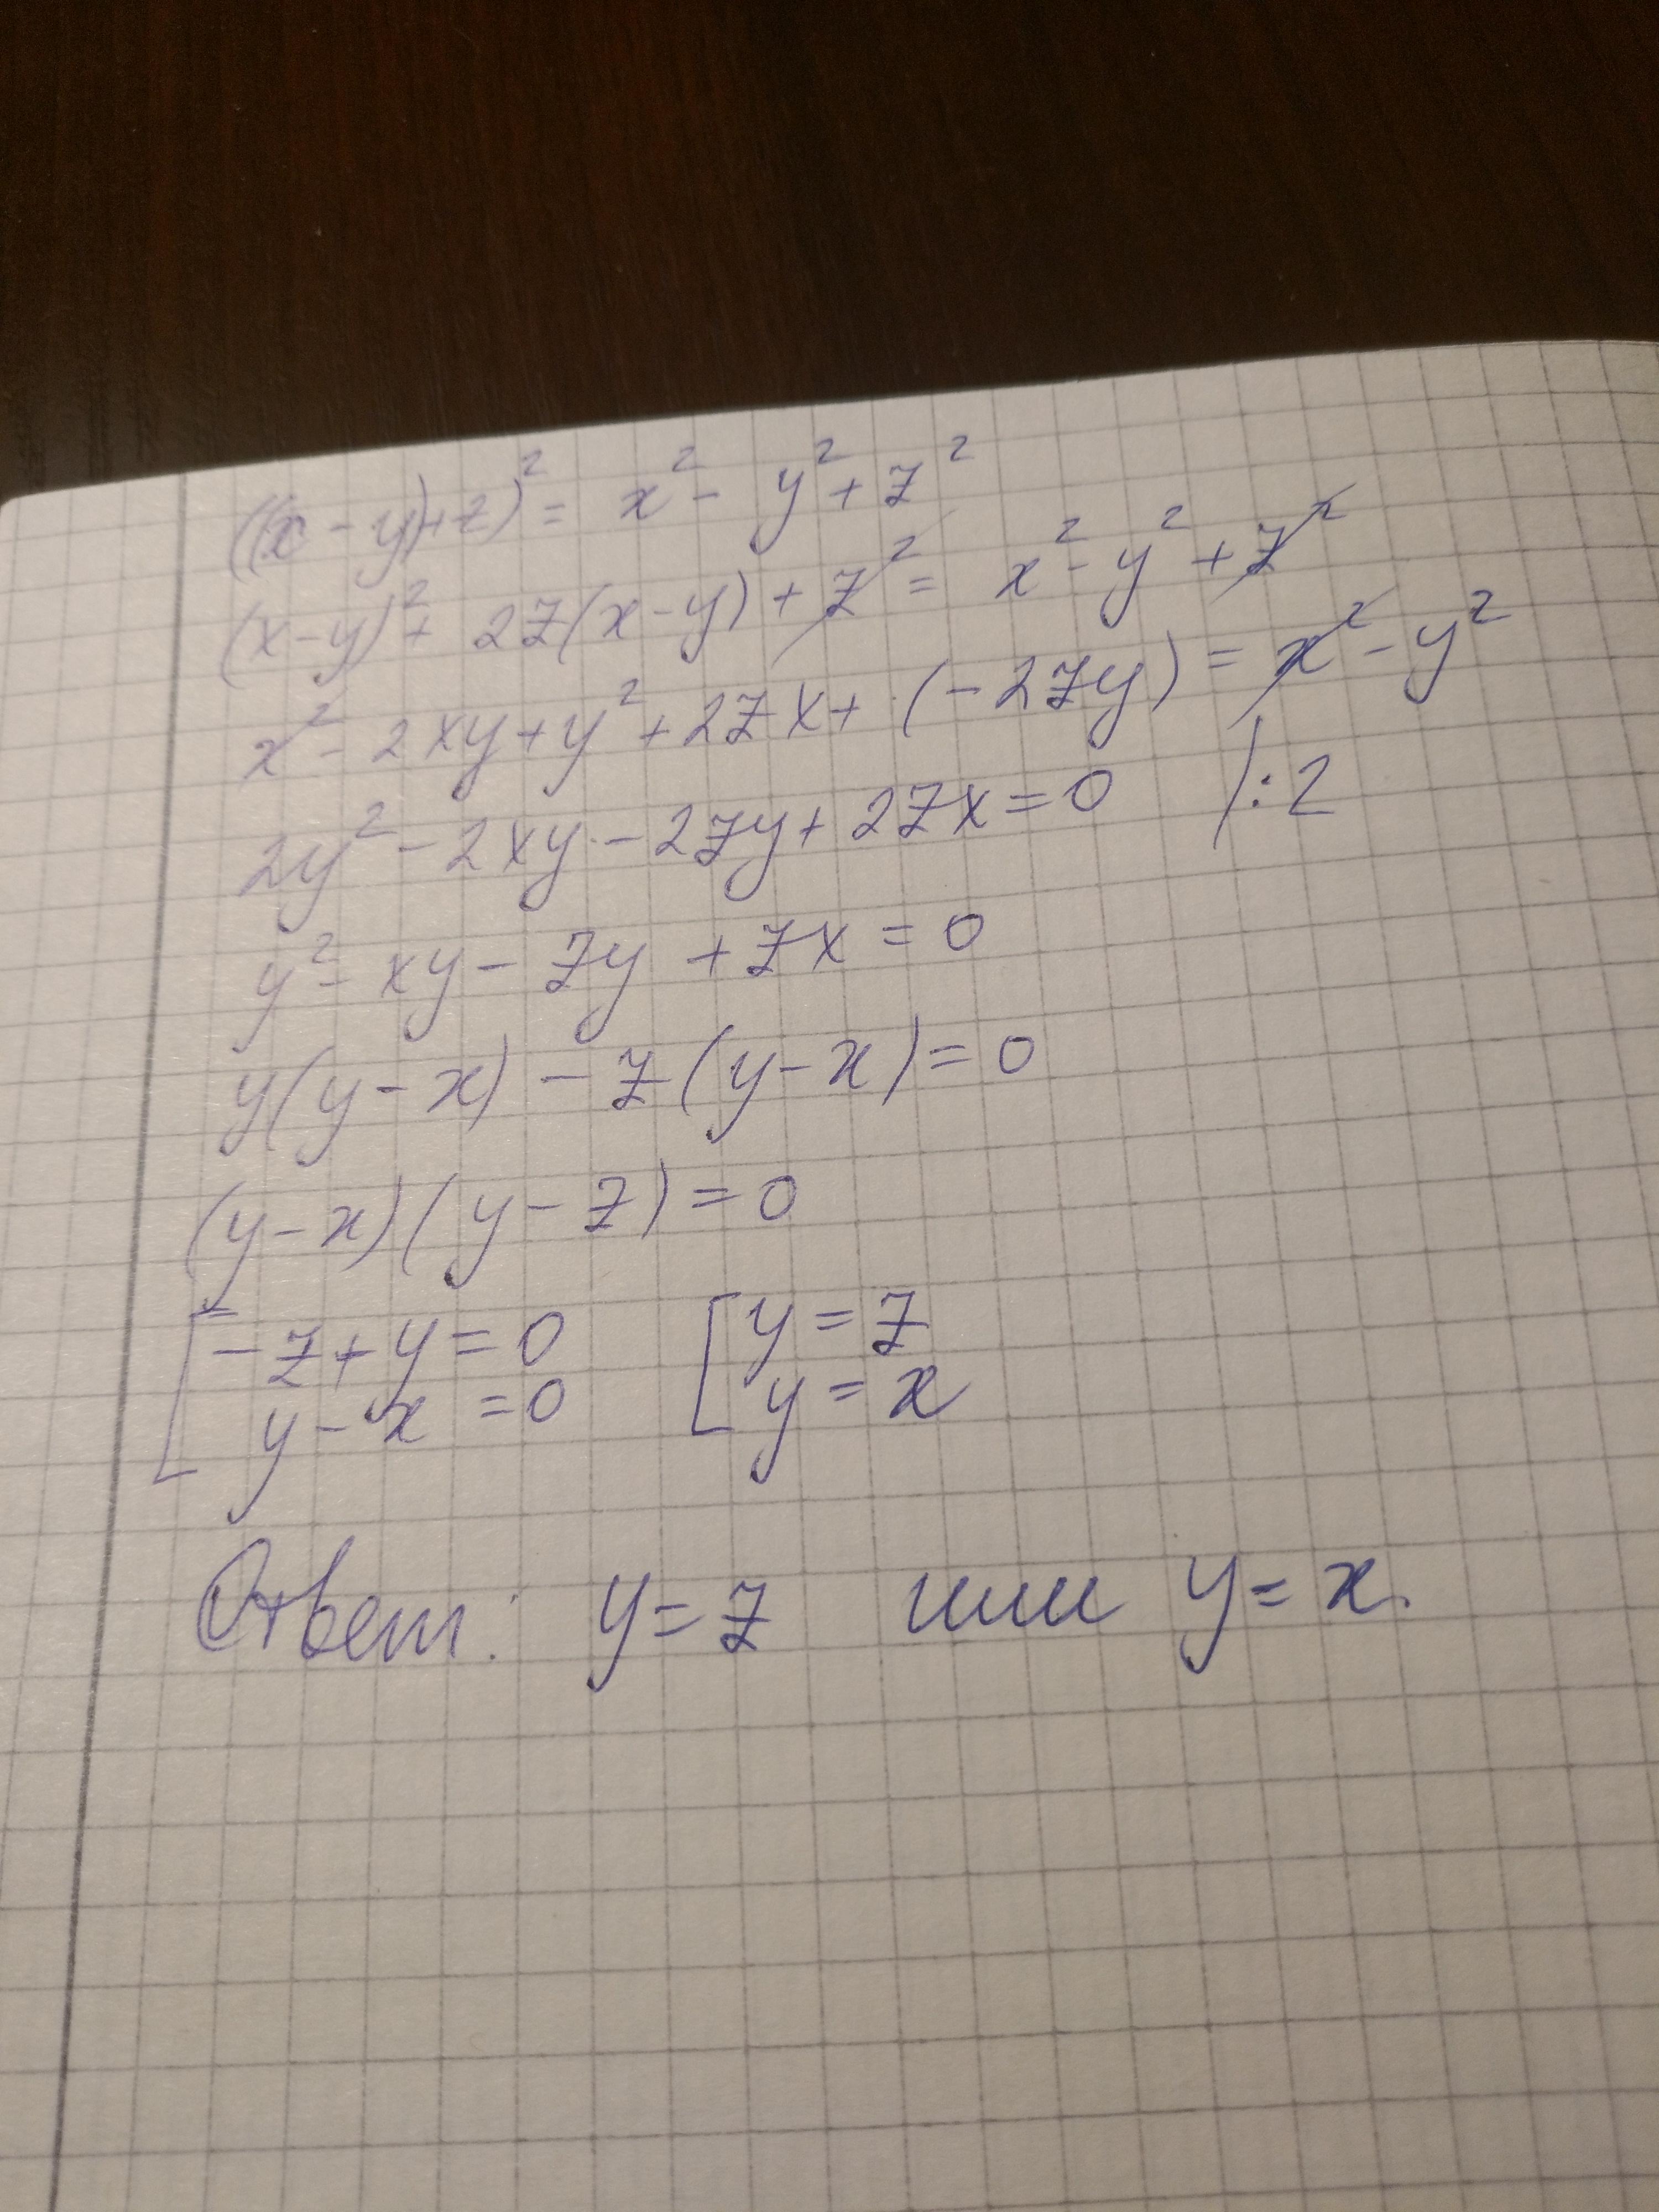 ((x-y)+z)² = x² - y² + z²
(x-y)² + 2z(x-y) + z² = x² - y² + z²
x² - 2xy + y² + 2zx + (-2zy) = x² - y²
2y² - 2xy - 2zy + 2zx = 0 |:2
y² - xy - zy + zx = 0
y(y-x) - z(y-x) = 0
(y-x)(y-z) = 0
[-z+y=0 [y=z
y-x=0 y=x
Ответ: y=z или y=x.